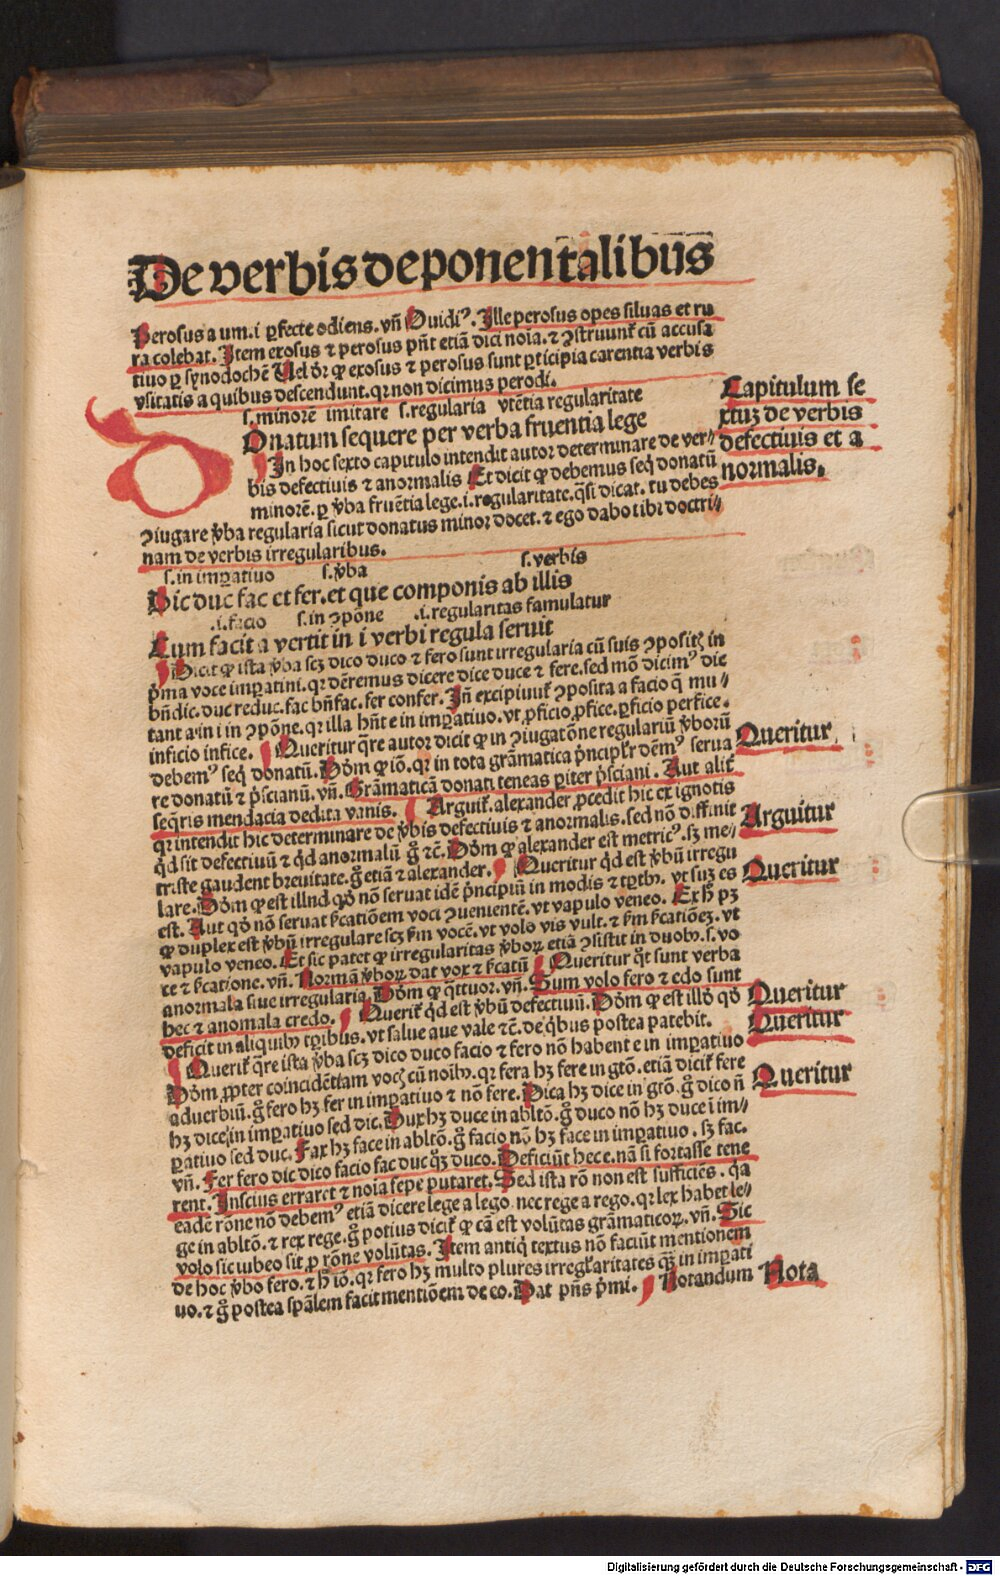 De verbis deponentalibus
Perosus a um.i ꝑfecte odiens.vn̄ Ouidiꝰ. Ille perosus opes siluas et ru
ra colebat. Item exosus ⁊ perosus pn̄t etiā dici noīa.⁊ ꝯstruunt᷑ cū accusa
tiuo ꝑ synodochē Uel ꝺr̄ ꝙ exosus ⁊ perosus sunt ꝑticipia carentia verbis
vsitatis a quibus descendunt.qꝛ non dicimus perodi.
s.minorē imitare s.regularia vtētia regularitate
DOnatum sequere per verba fruentia lege
In hoc sexto capitulo intendit autor determinare de ver⸗
bis defectiuis ⁊ anormalis Et dicit ꝙ debemus seq̄ donatū
minorē.ꝑ v̄ba fruētia lege.i.regularitate.q̄si dicat. tu debes
ꝯiugare v̄ba regularia sicut donatus minor docet.⁊ ego dabo tibi doctri⸗
nam de verbis irregularibus.
Capitulum se
xtuꝫ de verbis
defectiuis et a
normalis.
s.in imꝑatiuo s.v̄ba s.verbis
Dic duc fac et fer.et que componis ab illis
.i.facio s.in ꝯpone .i.regularitas famulatur
Cum facit a vertit in i verbi regula seruit
Dicit ꝙ ista v̄ba scꝫ dico duco ⁊ fero sunt irregularia cū suis ꝯpositꝭ in
p̄ma voce imꝑatini.qꝛ dēremus dicere dice duce ⁊ fere.sed mō dicimꝰ dic
bn̄dic.duc reduc.fac bn̄fac.fer confer. In̄ excipiunt᷑ ꝯposita a facio q̄ mu⸗
tant a in i in ꝯpōne.qꝛ illa hn̄t e in imꝑatiuo.vt ꝓficio ꝓfice.ꝑficio perfice.
inficio infice. Queritur q̄re autor dicit ꝙ in ꝯiugatōne regulariū v̄borū
debemꝰ seq̄ donatū. Dōm ꝙ iō.qꝛ in tota grāmatica p̄ncipłr dēmꝰ serua
re donatū ⁊ p̄scianū.vn̄. Grāmaticā donati teneas ꝑiter p̄sciani. Aut alit᷑
seq̄ris mendacia dedita vanis. Arguit᷑.alexander ꝓcedit hic ex ignotis
qꝛ intendit hic determinare de v̄bis defectiuis ⁊ anormalis.sed nō diffinit
q̄d sit defectiuū ⁊ q̄d anormalū g̊ ⁊c̄. Dōm ꝙ alexander est metricꝰ.sꝫ me⸗
triste gaudent breuitate.g̊ etiā ⁊ alexander. Queritur q̄d est v̄bū irregu
lare. Dōm ꝙ est illud qđ nō seruat idē p̄ncipiū in modis ⁊ tꝑibꝫ. vt suꝫ es
est. Aut qđ nō seruat sc̄atiōem voci ꝯuenientē.vt vapulo veneo. Ex hͦ pꝫ
ꝙ duplex est v̄bū irregulare scꝫ sm̄ vocē.vt volo vis vult.⁊ sm̄ sc̄atiōeꝫ.vt
vapulo veneo. Et sic patet ꝙ irregularitas v̄boꝝ etiā ꝯsistit in duobꝫ.s.vo
ce ⁊ sc̄atione.vn̄. Normā v̄boꝝ dat vox ⁊ sc̄atū Queritur qͦt sunt verba
anormala siue irregularia. Dōm ꝙ q̄ttuor.vn̄. Sum volo fero ⁊ edo sunt
hec ⁊ anomala credo. Querit᷑ q̄d est v̄bū defectiuū. Dōm ꝙ est illđ qđ
deficit in aliquibꝫ tꝑibus.vt salue aue vale ⁊c̄.de q̄bus postea patebit.
Querit᷑ q̄re ista v̄ba scꝫ dico duco facio ⁊ fero nō habent e in imꝑatiuo
Dōm ꝓpter coincidētiam vocꝭ cū noībꝫ.qꝛ fera hꝫ fere in gtō.etiā dicit᷑ fere
aduerbiū.g̊ fero hꝫ fer in imꝑatiuo ⁊ nō fere. Dica hꝫ dice in gtō.g̊ dico n̄
hꝫ dice in imꝑatiuo sed dic. Dux hꝫ duce in abltō.g̊ duco nō hꝫ duce ī im⸗
ꝑatiuo sed duc. Fax hꝫ face in abltō.g̊ facio nō hꝫ face in imꝑatiuo.sꝫ fac.
vn̄. Fer fero dic dico facio fac duc qꝫ duco. Deficiūt hec e.nā si fortasse tene
rent. Inscius erraret ⁊ noīa sepe putaret. Sed ista rō non est sufficiēs.q̄a
eadē rōne nō debemꝰ etiā dicere lege a lego nec rege a rego.qꝛ lex habet le⸗
ge in abltō.⁊ rex rege.g̊ potius dicit᷑ ꝙ cā est volūtas grāmaticoꝝ.vn̄. Sic
volo sic iubeo sit ꝓ rōne volūtas. Item antiq̄ textus nō faciūt mentionem
de hoc v̄bo fero.⁊ hͦ iō.qꝛ fero hꝫ multo plures irregłaritates qꝫ̄ in imꝑati
uo.⁊ g̊ postea spālem facit mentiōem de eo. Pat pn̄s p̄mi. Notandum
Queritur
Arguitur
Queritur
Queritur
Queritur
Queritur
Nota
Digitalisierung gefördert durch die Deutsche Forschungsgemeinschaft - DFG